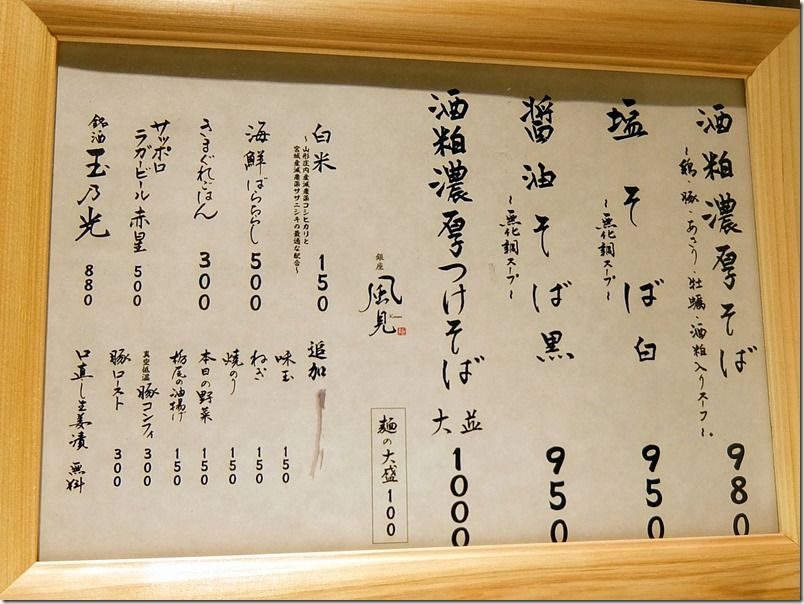 酒粕濃厚そば 980
～鶏・豚・あさり・牡蠣・酒粕入りスープ～
塩そば 白 950
～無化調スープ～
醤油そば 黒 950
～無化調スープ～
酒粕濃厚つけそば 並 大 1000
麺の大盛 100
銀座 風見
白米 150
～山形庄内産減農薬コシヒカリと
宮城産減農薬ササニシキの最適な配合～
海鮮ばらちらし 500
きまぐれごはん 300
サッポロ
ラガービール 赤星 500
銘酒 玉乃光 880
追加
味玉 150
ねぎ 150
焼のり 150
本日の野菜 150
栃尾の油揚げ 150
真空低温 豚コンフィ 300
豚ロースト 300
口直し生姜漬 無料